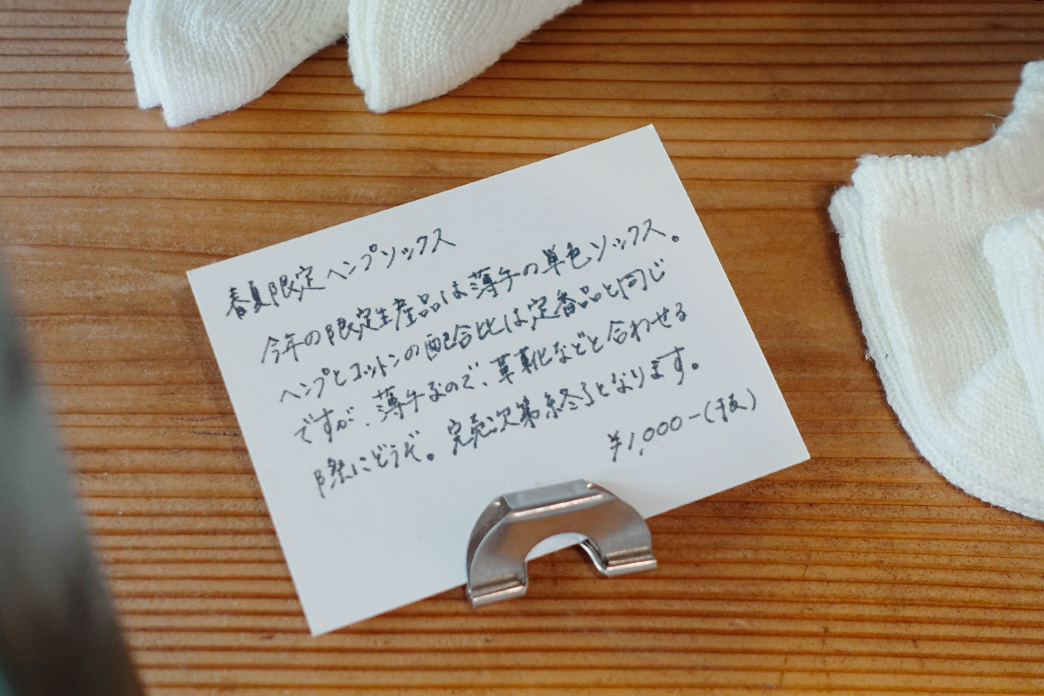 春夏限定ヘンプソックス
今年の限定生産品は薄手の単色ソックス。
ヘンプとコットンの配合比は定番品と同じ
ですが、薄手なので、革靴などと合わせる
際にどうぞ。完売次第終了となります。
¥1,000-(抜)